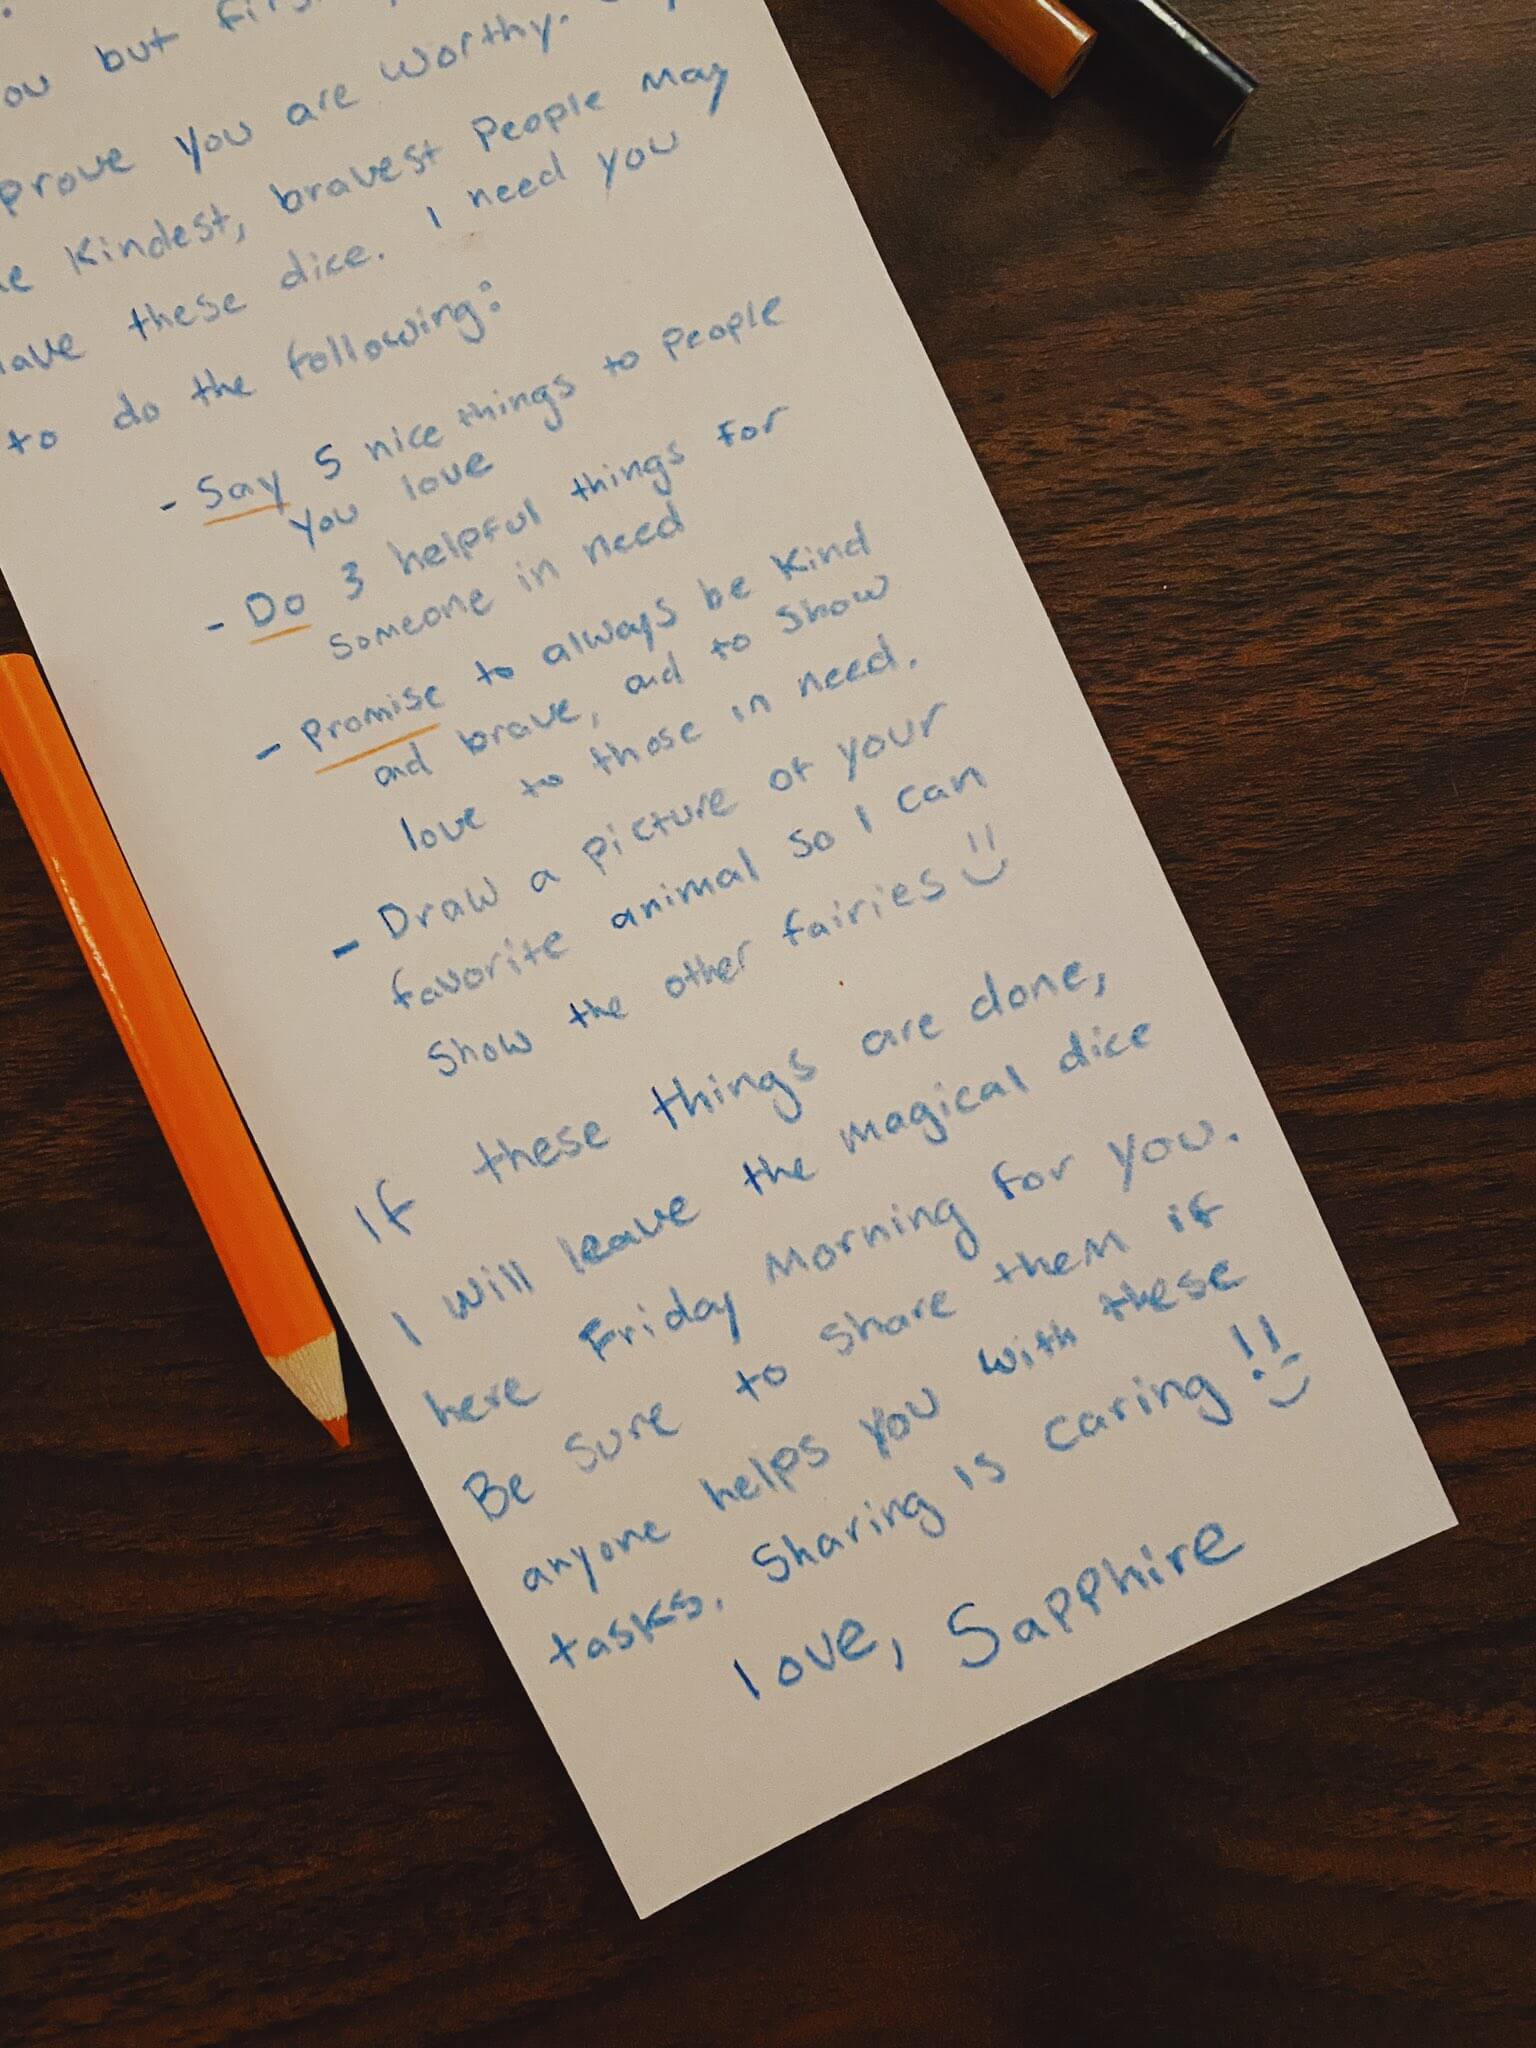 but first,
prove you are worthy.
kindest, bravest people may
these dice. I need you
to do the following:
- Say 5 nice things to people
you love
- Do 3 helpful things for
someone in need
- Promise to always be kind
and brave, and to show
love to those in need.
- Draw a picture of your
favorite animal so I can
show the other fairies
If these things are done,
I will leave the magical dice
here Friday morning for you.
Be sure to share them if
anyone helps you with these
tasks. Sharing is caring!!
Love, Sapphire